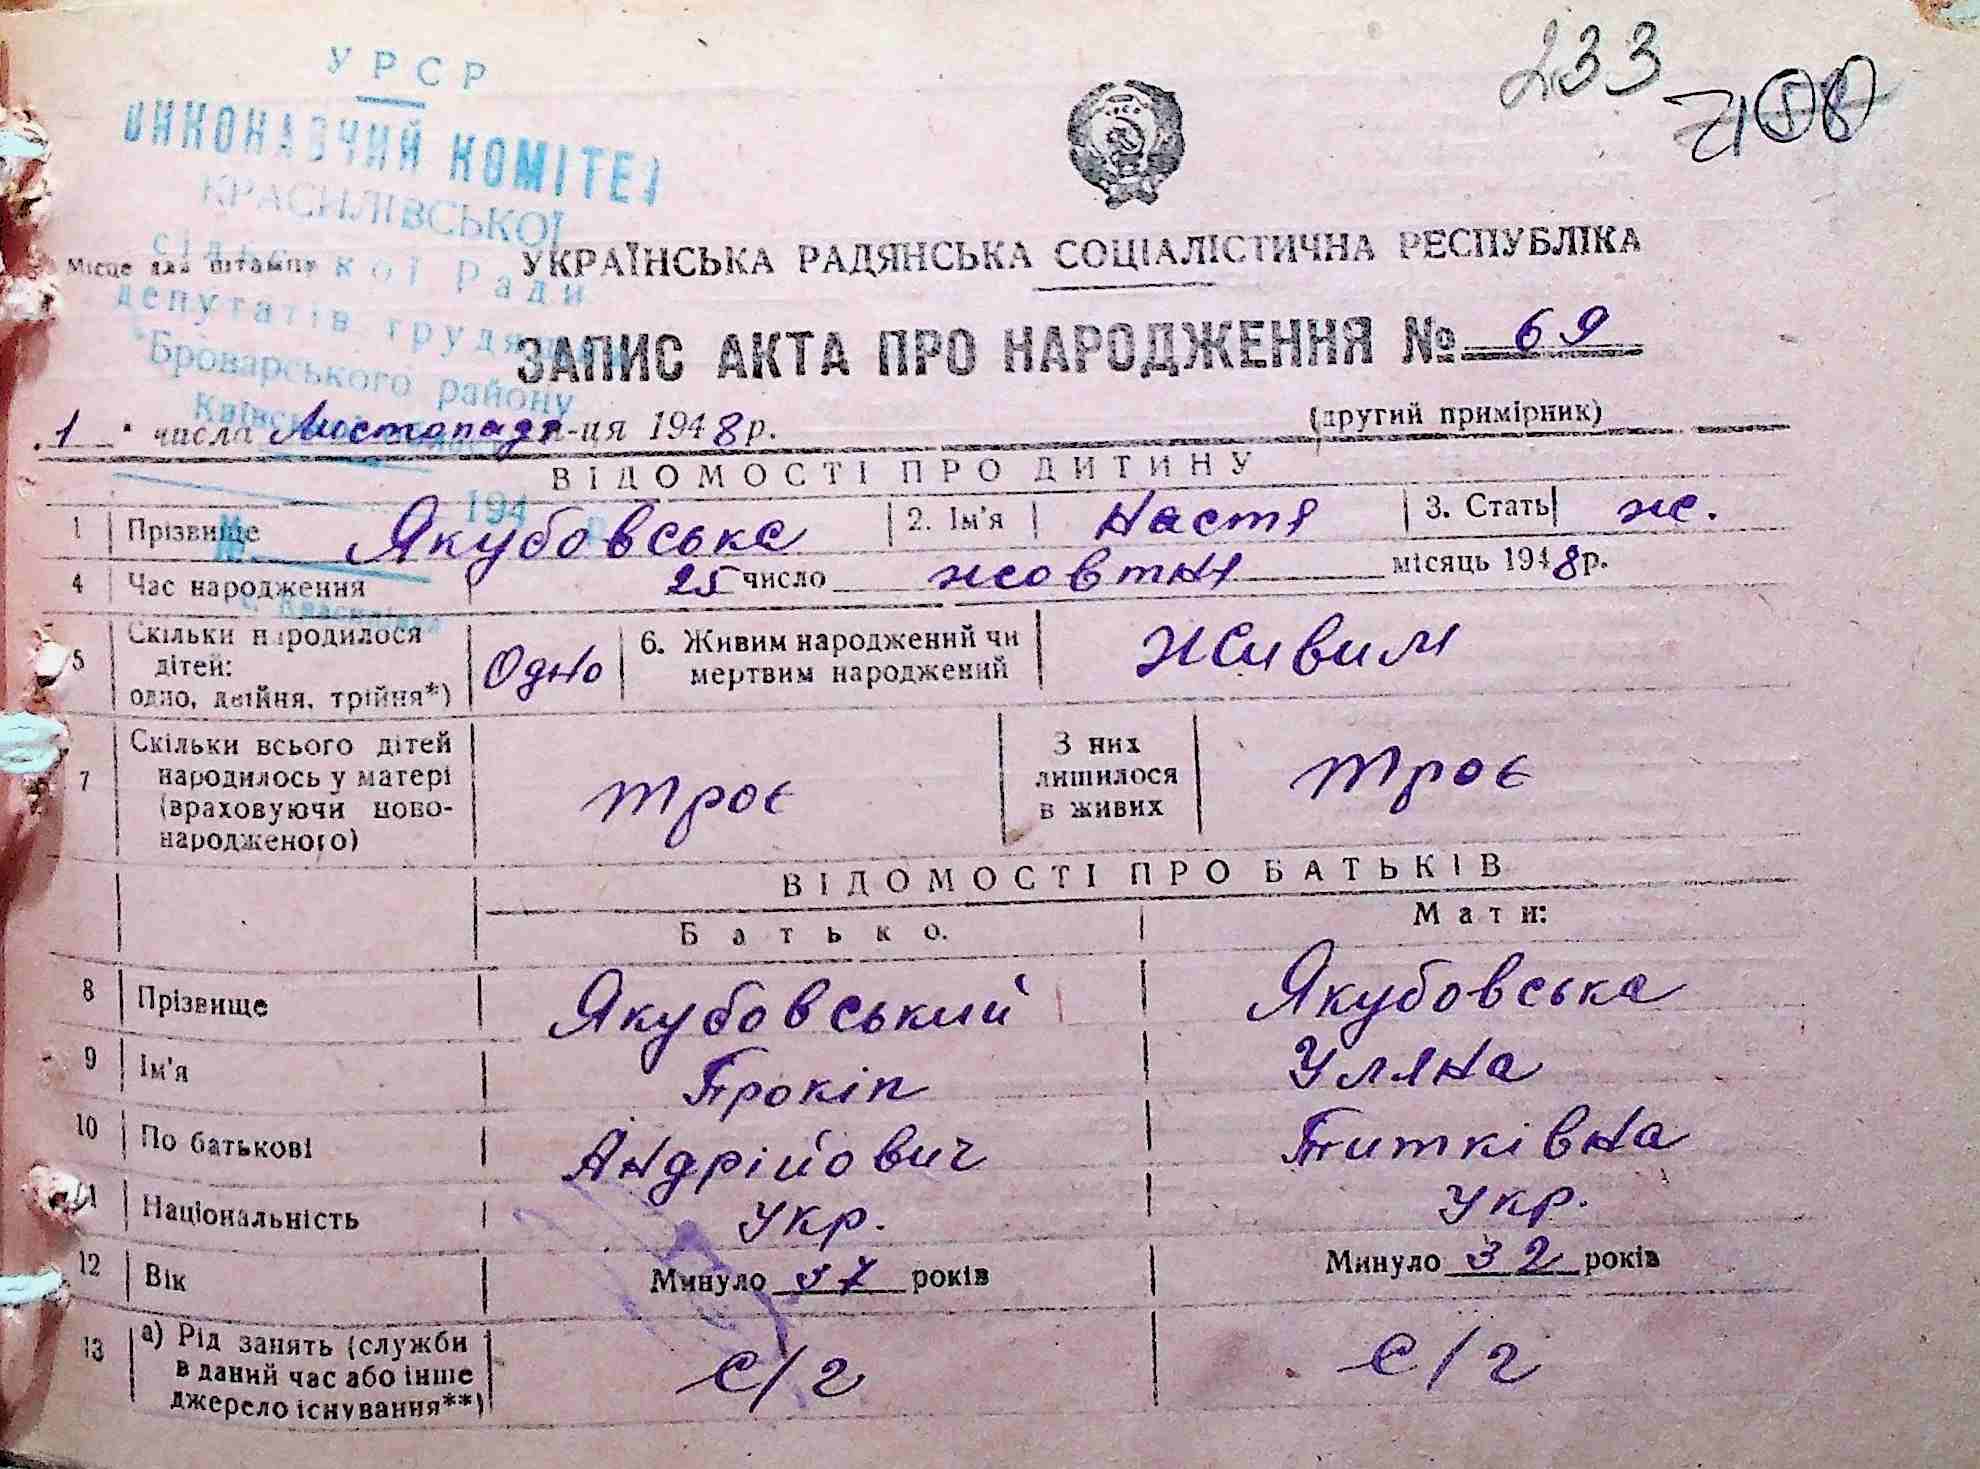 233
УРСР
ВИКОНАВЧИЙ КОМІТЕТ
КРАСИЛІВСЬКОЇ
сільської Ради
депутатів трудящих
Броварського району
Київської
194
№
с. Красилівка
Місце для штампу
УКРАЇНСЬКА РАДЯНСЬКА СОЦІАЛІСТИЧНА РЕСПУБЛІКА
ЗАПИС АКТА ПРО НАРОДЖЕННЯ № 69
"1" числа Листопада м-ця 1948 р. (другий примірник)
ВІДОМОСТІ ПРО ДИТИНУ
1 Прізвище Якубовська 2. Ім'я Настя 3. Стать ж.
4 Час народження 25 число жовтня місяць 1948 р.
5 Скільки народилося дітей: одно, двійня, трійня*) Одно 6. Живим народжений чи мертвим народжений Живим
7 Скільки всього дітей народилось у матері (враховуючи новонародженого) троє З них лишилося в живих троє
ВІДОМОСТІ ПРО БАТЬКІВ
Батько. Мати:
8 Прізвище Якубовський Якубовська
9 Ім'я Прокіп Уляна
10 По батькові Андрійович Титківна
11 Національність Укр. Укр.
12 Вік Минуло 37 років Минуло 32 років
13 а) Рід занять (служби в даний час або інше джерело існування**) с/г с/г